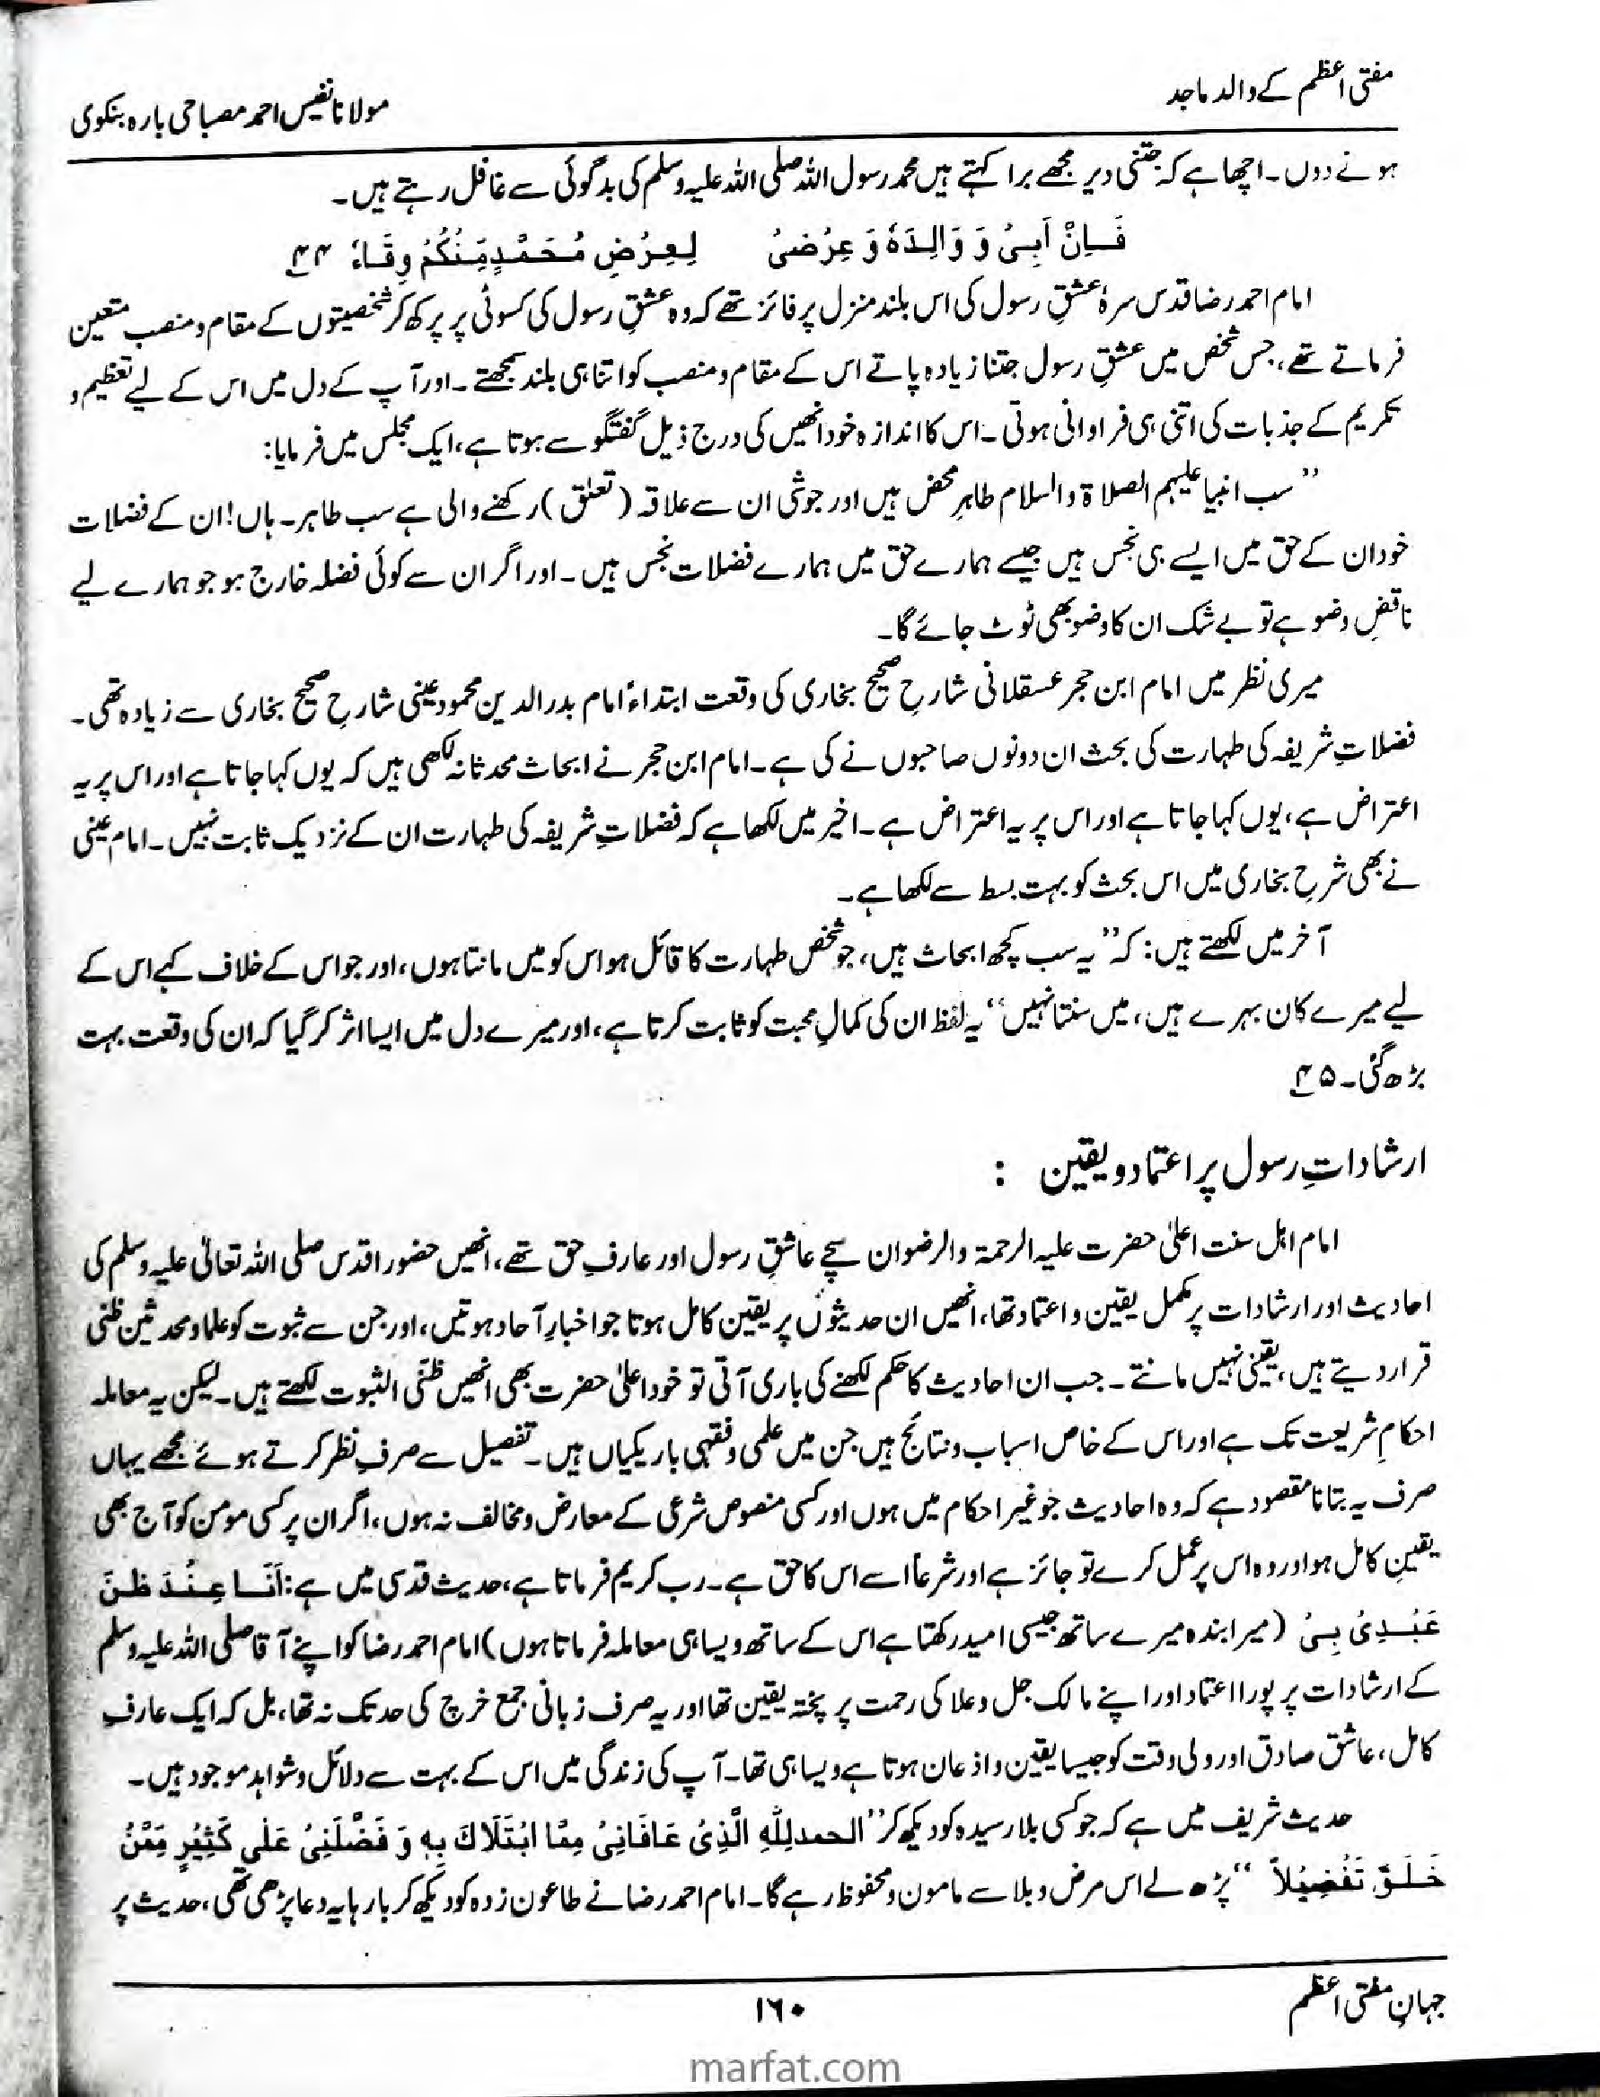 مفتی اعظم کے والد ماجد
مولانا نفیس احمد مصباحی بارہ بنکوی
ہونے دوں۔ اچھا ہے کہ جتنی دیر مجھے برا کہتے ہیں محمد رسول اللہ صلی اللہ علیہ وسلم کی بدگوئی سے غافل رہتے ہیں۔
فَاِنْ اَبِیْ وَ وَالِدَهٗ وَ عِرْضِیْ لِعِرْضِ مُحَمَّدٍ مِّنْکُمْ وِقَاءٗ ۴۴
امام احمد رضا قدس سرہٗ عشقِ رسول کی اس بلند منزل پر فائز تھے کہ وہ عشقِ رسول کی کسوٹی پر پرکھ کر شخصیتوں کے مقام و منصب متعین
فرماتے تھے، جس شخص میں عشقِ رسول جتنا زیادہ پاتے اس کے مقام و منصب کو اتنا ہی بلند سمجھتے۔ اور آپ کے دل میں اس کے لیے تعظیم و
تکریم کے جذبات کی اتنی ہی فراوانی ہوتی۔ اس کا اندازہ خود انھیں کی درج ذیل گفتگو سے ہوتا ہے، ایک مجلس میں فرمایا:
’’سب انبیا علیہم الصلاۃ والسلام طاہرِ محض ہیں اور جو شی ان سے علاقہ (تعلق) رکھنے والی ہے سب طاہر۔ ہاں! ان کے فضلات
خود ان کے حق میں ایسے ہی نجس ہیں جیسے ہمارے حق میں ہمارے فضلات نجس ہیں۔ اور اگر ان سے کوئی فضلہ خارج ہو جو ہمارے لیے
ناقضِ وضو ہے تو بے شک ان کا وضو بھی ٹوٹ جائے گا۔
میری نظر میں امام ابن حجر عسقلانی شارحِ صحیح بخاری کی وقعت ابتداءً امام بدر الدین محمود عینی شارحِ صحیح بخاری سے زیادہ تھی۔
فضلاتِ شریفہ کی طہارت کی بحث ان دونوں صاحبوں نے کی ہے۔ امام ابن حجر نے ابحاث محدثانہ لکھی ہیں کہ یوں کہا جاتا ہے اور اس پر یہ
اعتراض ہے، یوں کہا جاتا ہے اور اس پر یہ اعتراض ہے۔ اخیر میں لکھا ہے کہ فضلاتِ شریفہ کی طہارت ان کے نزدیک ثابت نہیں۔ امام عینی
نے بھی شرحِ بخاری میں اس بحث کو بہت بسط سے لکھا ہے۔
آخر میں لکھتے ہیں: کہ ’’یہ سب کچھ ابحاث ہیں، جو شخص طہارت کا قائل ہو اس کو میں مانتا ہوں، اور جو اس کے خلاف کہے اس کے
لیے میرے کان بہرے ہیں، میں سنتا نہیں‘‘ یہ لفظ ان کی کمالِ محبت کو ثابت کرتا ہے، اور میرے دل میں ایسا اثر کر گیا کہ ان کی وقعت بہت
بڑھ گئی۔ ۴۵
ارشاداتِ رسول پر اعتماد و یقین :
امام اہل سنت اعلیٰ حضرت علیہ الرحمۃ والرضوان سچے عاشقِ رسول اور عارفِ حق تھے، انھیں حضور اقدس صلی اللہ تعالیٰ علیہ وسلم کی
احادیث اور ارشادات پر مکمل یقین و اعتماد تھا، انھیں ان حدیثوں پر یقین کامل ہوتا جو اخبارِ آحاد ہوتیں، اور جن سے ثبوت کو علما و محدثین ظنی
قرار دیتے ہیں، یقینی نہیں مانتے۔ جب ان احادیث کا حکم لکھنے کی باری آتی تو خود اعلیٰ حضرت بھی انھیں ظنّی الثبوت لکھتے ہیں۔ لیکن یہ معاملہ
احکامِ شریعت تک ہے اور اس کے خاص اسباب و نتائج ہیں جن میں علمی و فقہی باریکیاں ہیں۔ تفصیل سے صرفِ نظر کرتے ہوئے مجھے یہاں
صرف یہ بتانا مقصود ہے کہ وہ احادیث جو غیر احکام میں ہوں اور کسی منصوص شرعی کے معارض و مخالف نہ ہوں، اگر ان پر کسی مومن کو آج بھی
یقینِ کامل ہو اور وہ اس پر عمل کرے تو جائز ہے اور شرعاً اسے اس کا حق ہے۔ رب کریم فرماتا ہے، حدیث قدسی میں ہے: اَنَا عِنْدَ ظَنِّ
عَبْدِیْ بِیْ (میرا بندہ میرے ساتھ جیسی امید رکھتا ہے اس کے ساتھ ویسا ہی معاملہ فرماتا ہوں) امام احمد رضا کو اپنے آقا صلی اللہ علیہ وسلم
کے ارشادات پر پورا اعتماد اور اپنے مالک جل وعلا کی رحمت پر پختہ یقین تھا اور یہ صرف زبانی جمع خرچ کی حد تک نہ تھا، بل کہ ایک عارفِ
کامل، عاشق صادق اور ولی وقت کو جیسا یقین و اذعان ہوتا ہے ویسا ہی تھا۔ آپ کی زندگی میں اس کے بہت سے دلائل و شواہد موجود ہیں۔
حدیث شریف میں ہے کہ جو کسی بلا رسیدہ کو دیکھ کر ’’الحمدلِلّٰہِ الَّذِیْ عَافَانِیْ مِمَّا ابْتَلَاكَ بِهٖ وَ فَضَّلَنِیْ عَلٰی کَثِیْرٍ مِّمَّنْ
خَلَقَ تَفْضِیْلاً‘‘ پڑھ لے اس مرض و بلا سے مامون و محفوظ رہے گا۔ امام احمد رضا نے طاعون زدہ کو دیکھ کر بارہا یہ دعا پڑھی تھی، حدیث پر
جہانِ مفتی اعظم
۱۶۰
marfat.com